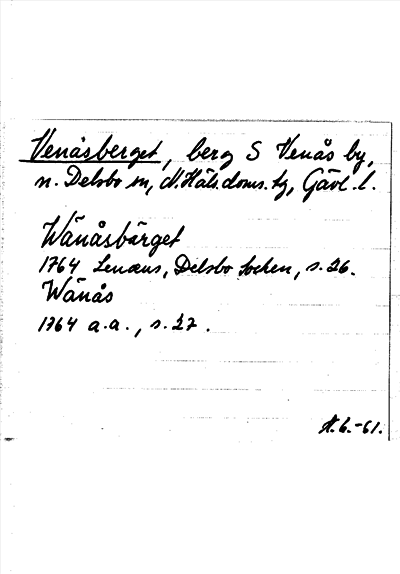 Venåsberget, berg S Venås by,
n. Delsbo sn, N.Häls.doms. tg, Gävl. l.
Wänåsbärget
1764 Lenæus, Delsbo Sochen, s. 26.
Wänås
1764 a.a., s. 27.
A.b.-61.